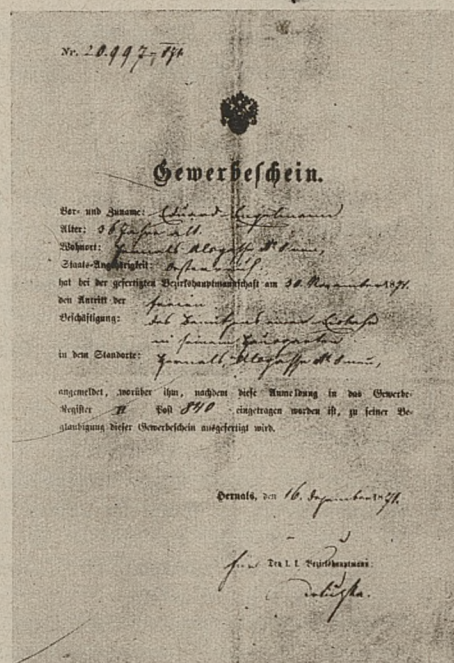 Nr. 20.997
Gewerbeschein.
Vor- und Zuname: Eduard Engelmann
Alter: 36 Jahre alt.
Wohnort: Hernals
Staats-Angehörigkeit: Oesterreich
hat bei der gefertigten Bezirkshauptmannschaft am 30. November 871.
den Antritt der freien
Beschäftigung: des Benützens einer Eisbahn
in seinem Hausgarten
in dem Standorte: Hernals
angemeldet, worüber ihm, nachdem diese Anmeldung in das Gewerbe-
Register Post 840 eingetragen worden ist, zu seiner Be-
glaubigung dieser Gewerbeschein ausgefertigt wird.
Hernals, den 16. Dezember 1871.
Der k. k. Bezirkshauptmann: